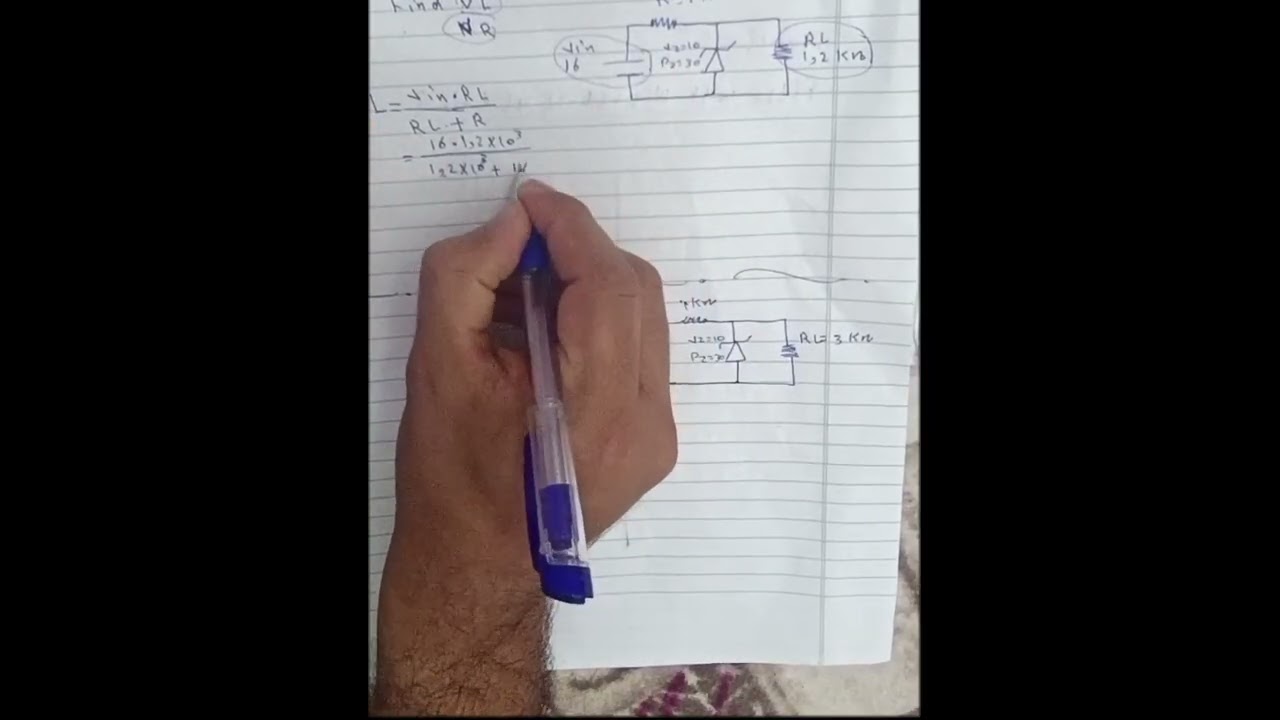 Find VL
VR
Vin
16
Vz=10
Pz=30
RL
1,2 KΩ
L = Vin·RL
RL + R
= 16·1,2×10³
1,2×10³ + 1K
1KΩ
Vz=10
Pz=30
RL=3 KΩ